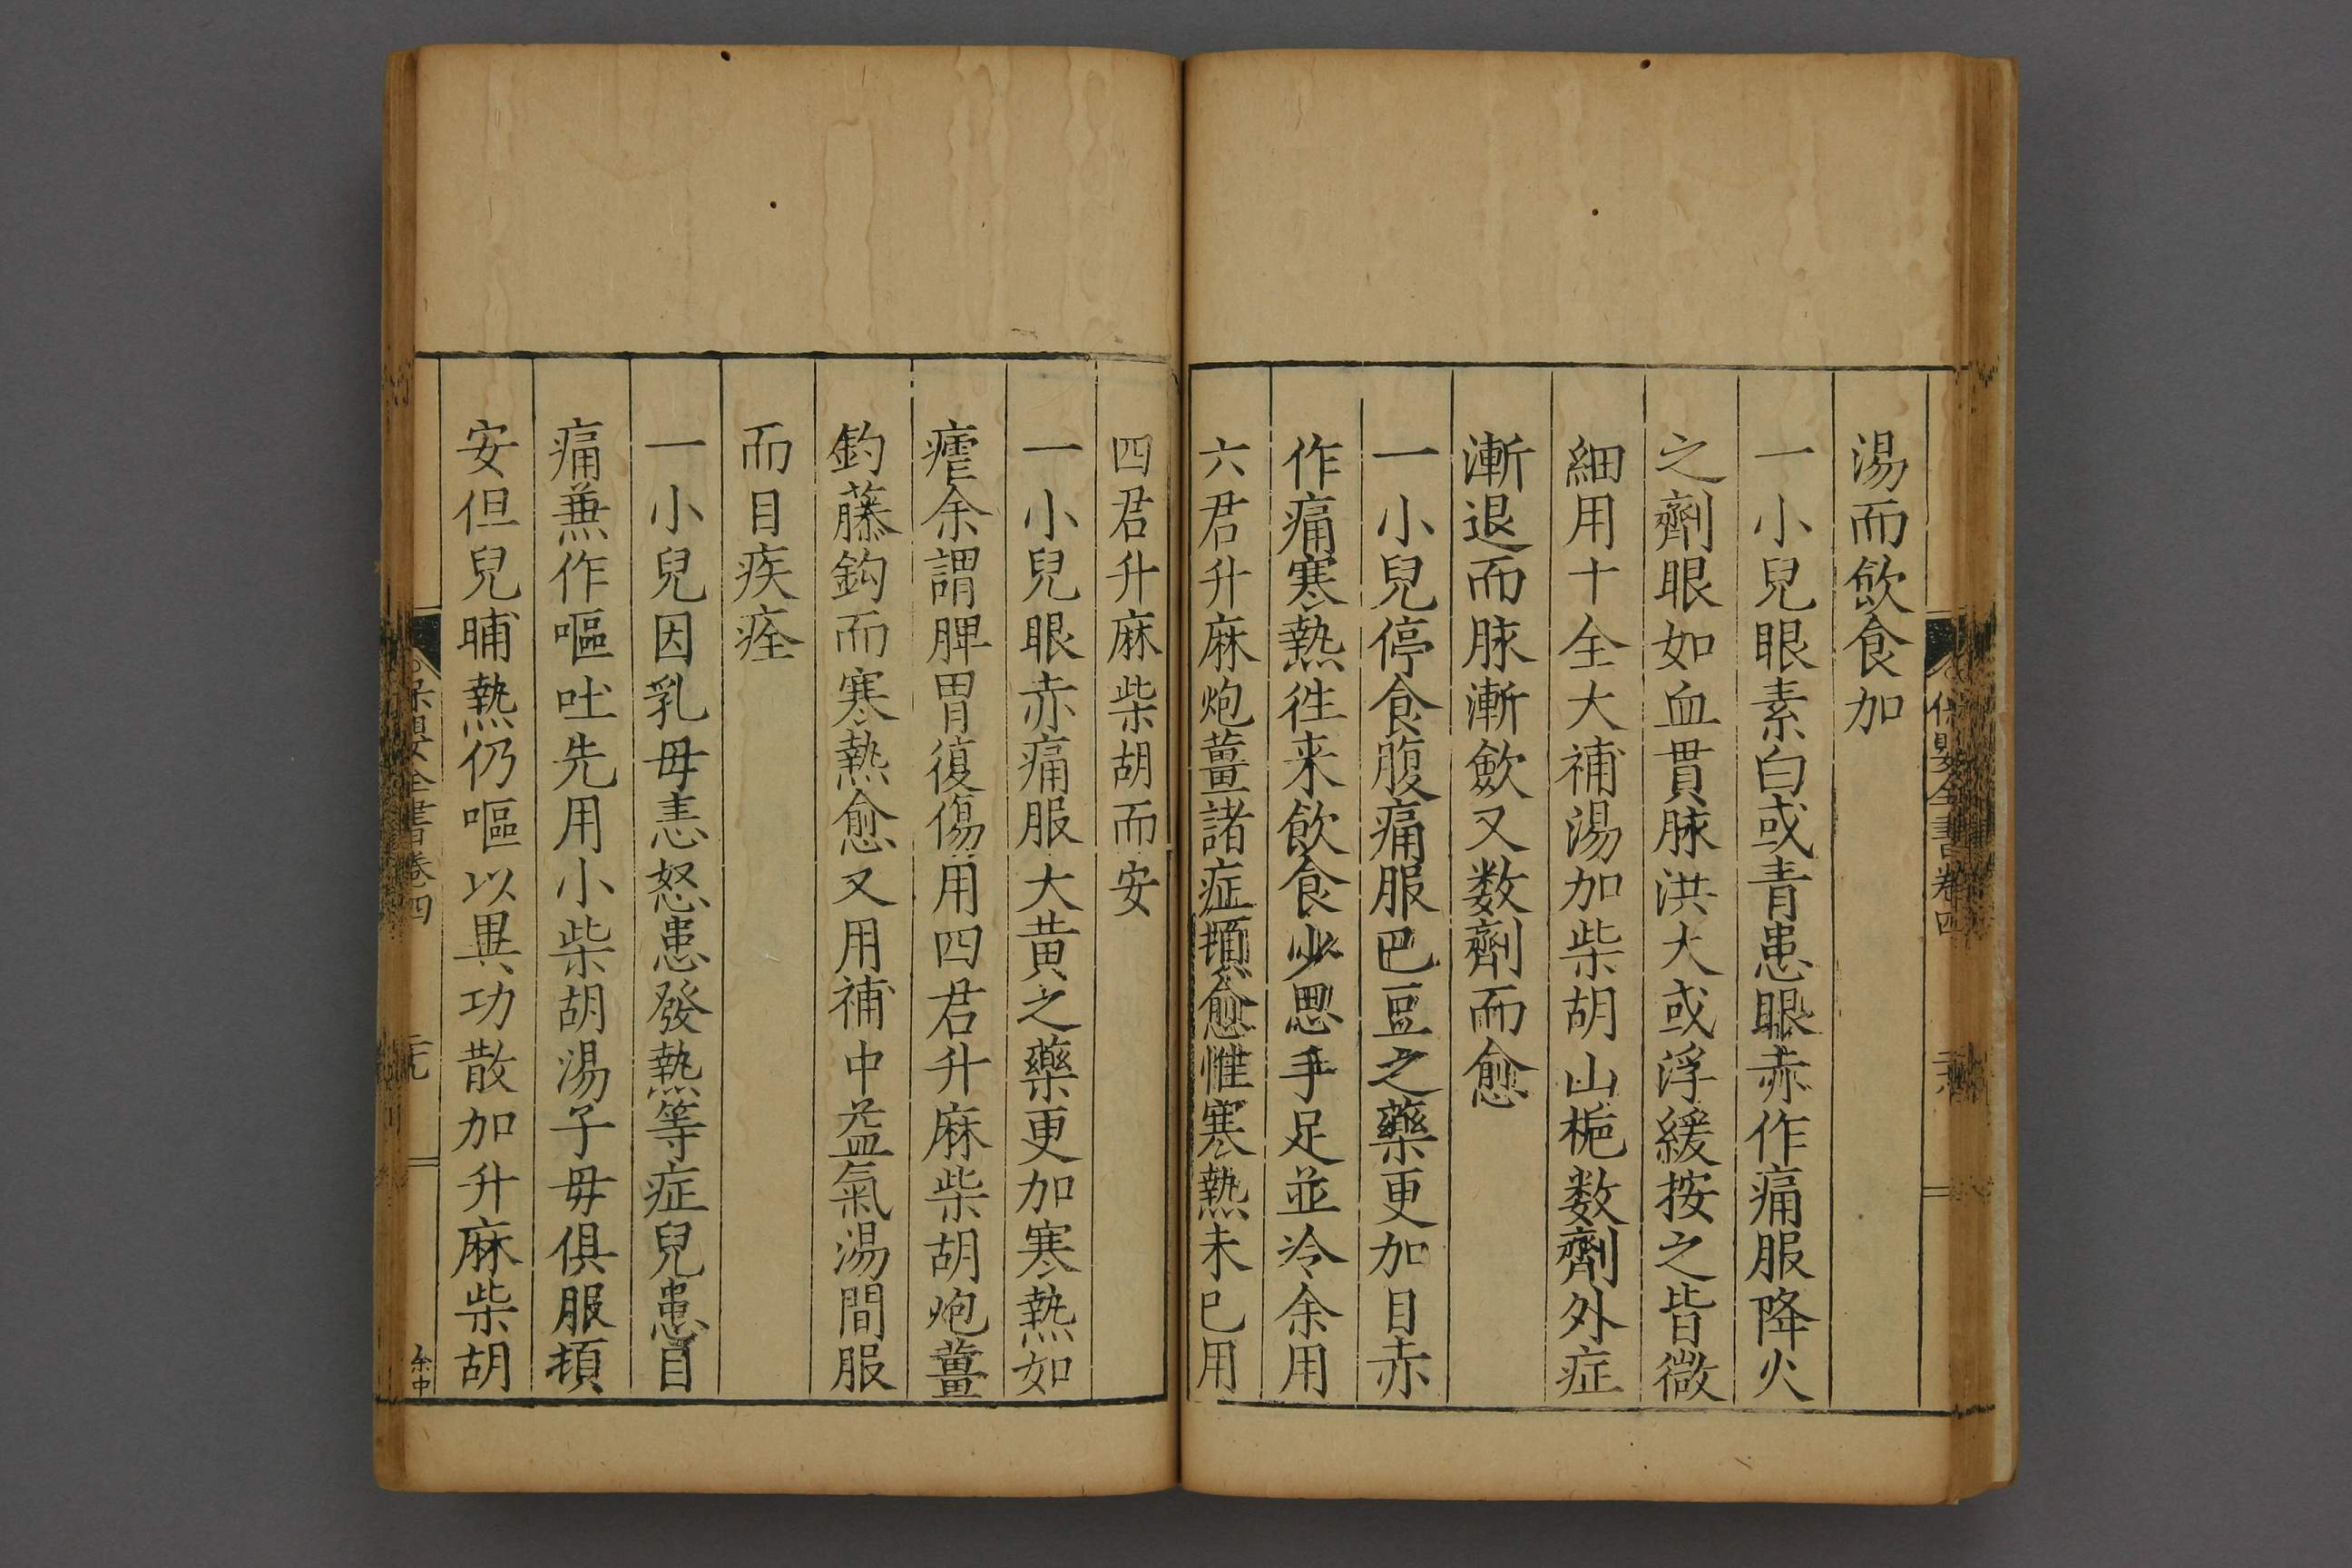 湯而飲食加
一小兒眼素白或青患眼赤作痛服降火
之劑眼如血貫脉洪大或浮緩按之皆微
細用十全大補湯加柴胡山梔数劑外症
漸退而脉漸斂又数劑而愈
一小兒停食腹痛服巴豆之藥更加目赤
作痛寒熱徃来飲食少思手足並冷余用
六君升麻炮薑諸症頓愈惟寒熱未已用
四君升麻柴胡而安
一小兒眼赤痛服大黄之藥更加寒熱如
瘧余謂脾胃復傷用四君升麻柴胡炮薑
釣藤鈎而寒熱愈又用補中益氣湯間服
而目疾痊
一小兒因乳母恚怒患發熱等症兒患目
痛兼作嘔吐先用小柴胡湯子母俱服頓
安但兒晡熱仍嘔以異功散加升麻柴胡
保嬰全書卷四
余中